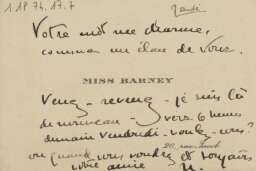 1 18 74. 17. 7
jeudi
Votre mot me charme,
comme un élan de vous.
MISS BARNEY
Venez - revenez - je suis là
de nouveau - vers 6 heures
demain vendredi - voulez-vous?
20, rue Jacob
ou quand vous voudrez et soyons
votre amie